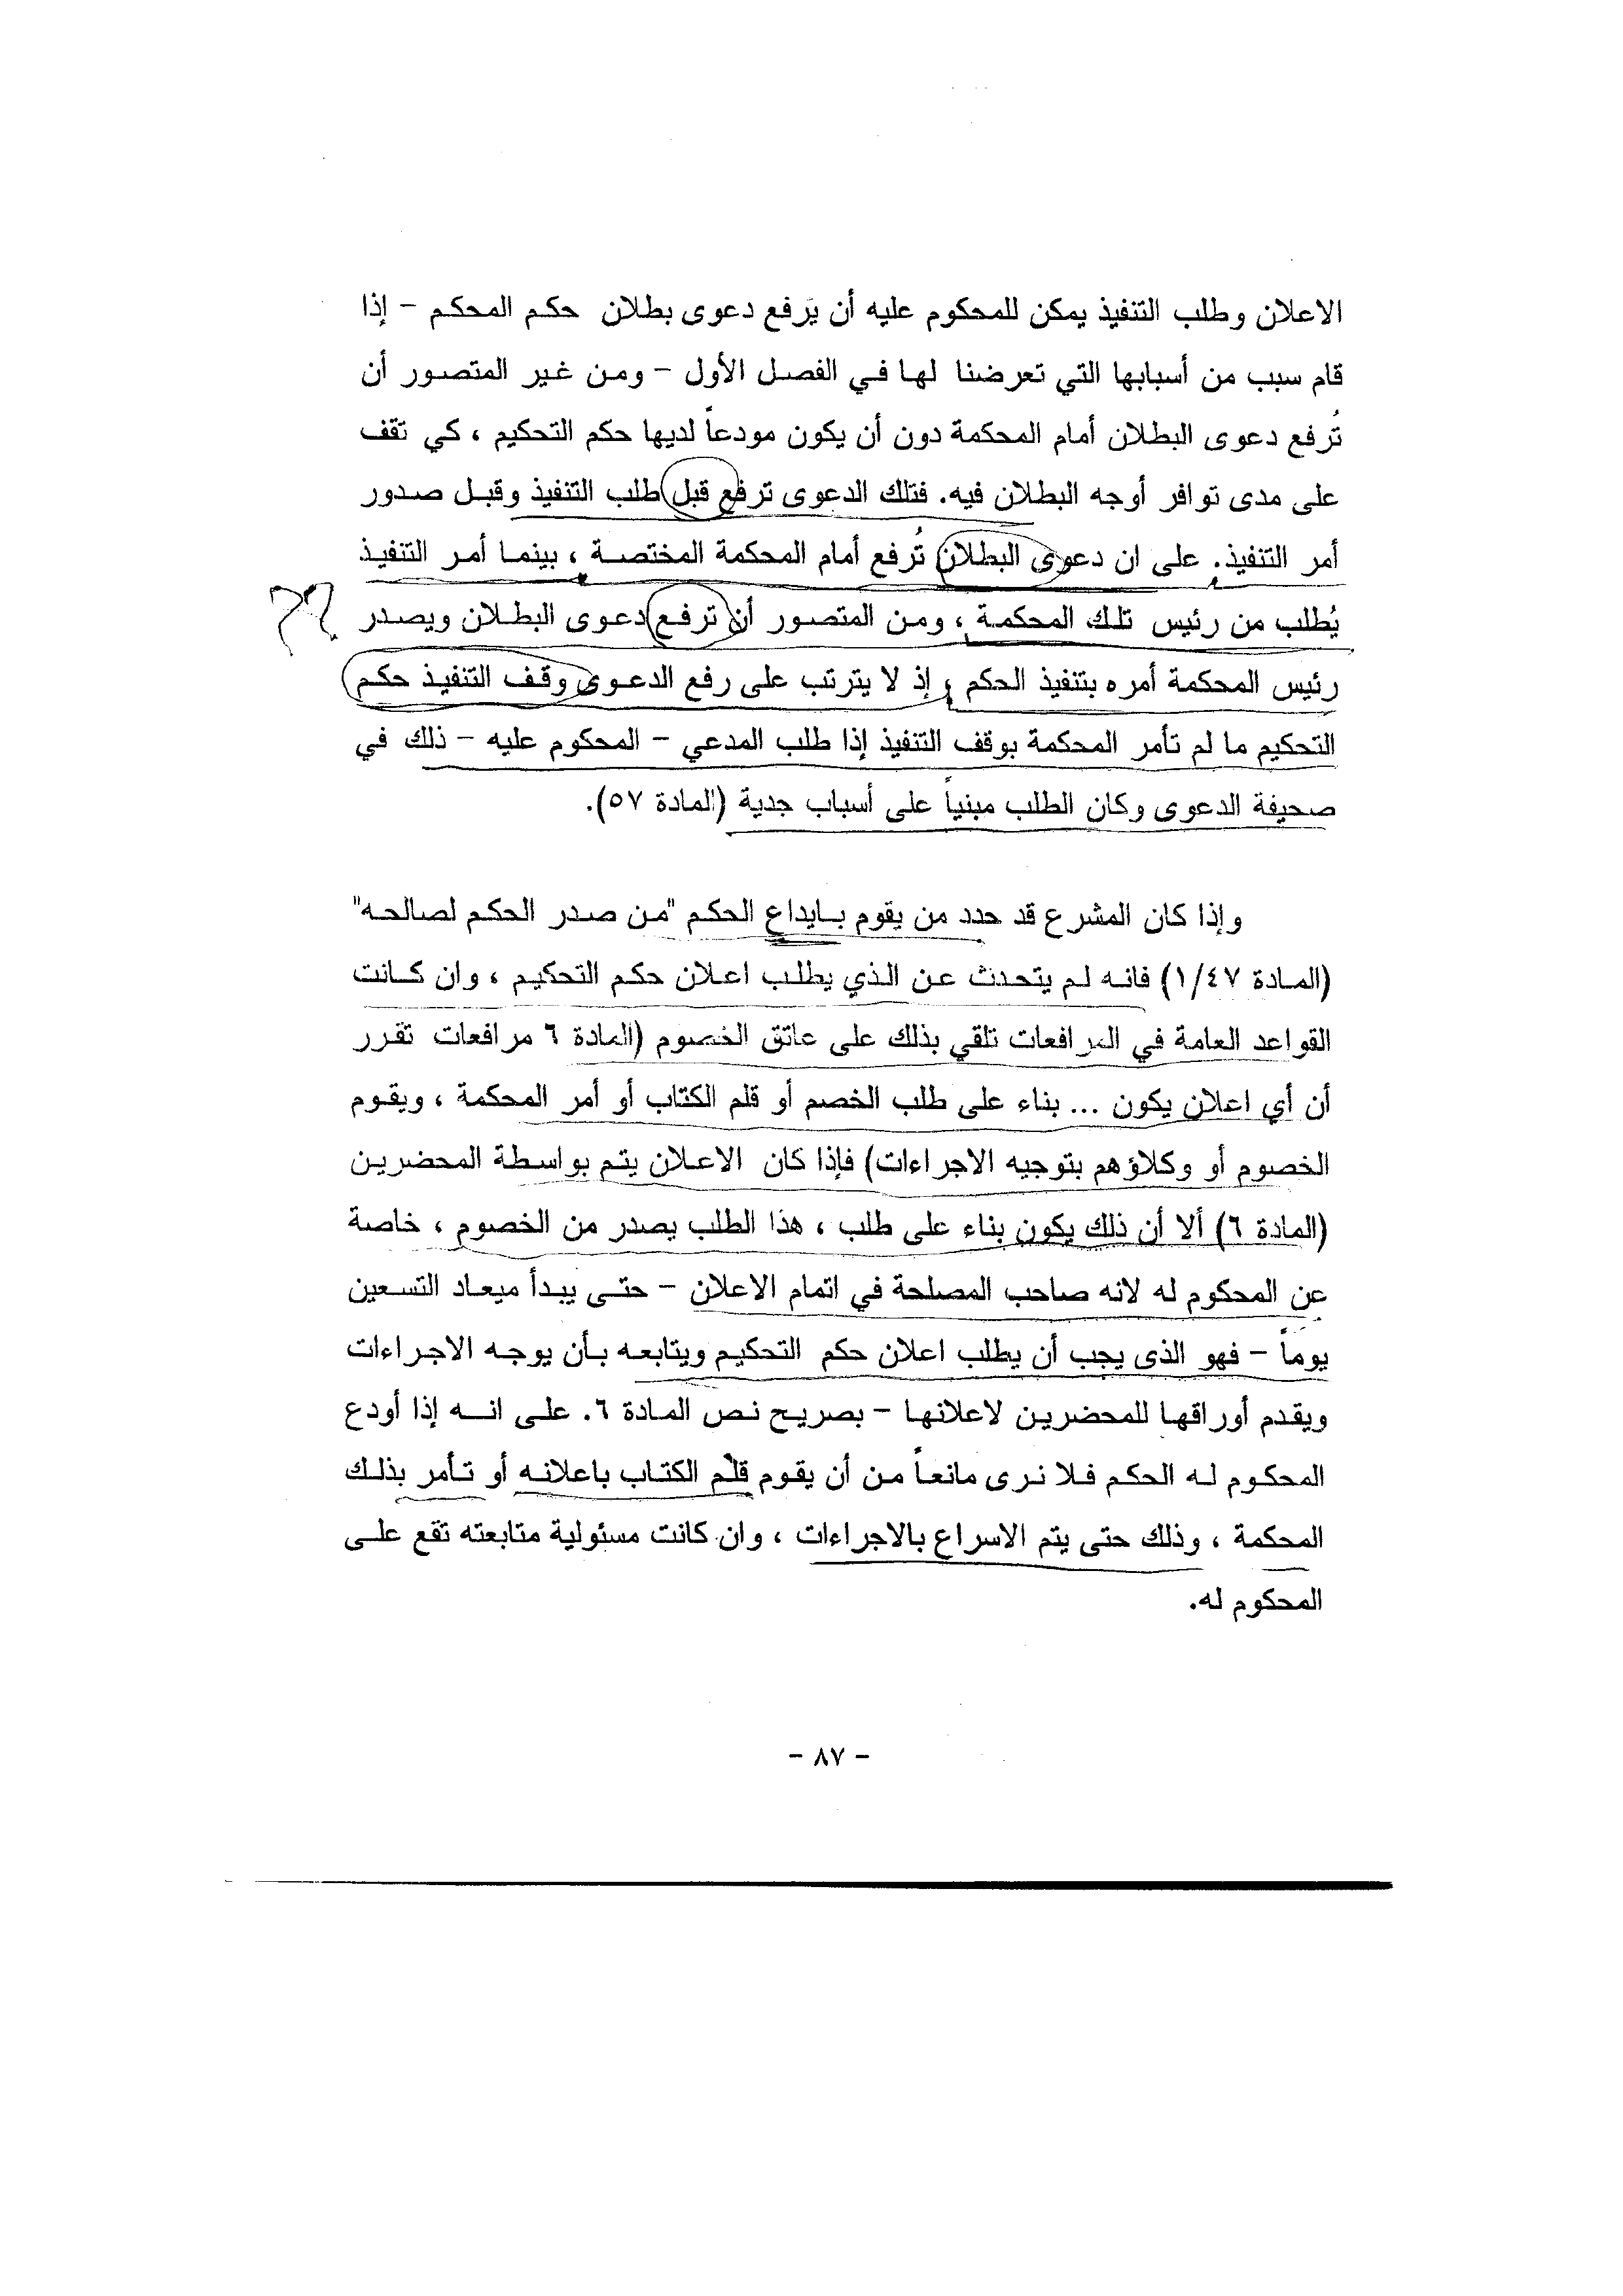 الاعلان وطلب التنفيذ يمكن للمحكوم عليه أن يَرفع دعوى بطلان حكم المحكم – إذا
قام سبب من أسبابها التي تعرضنا لها في الفصل الأول – ومن غير المتصور أن
تُرفع دعوى البطلان أمام المحكمة دون أن يكون مودعاً لديها حكم التحكيم ، كي تقف
على مدى توافر أوجه البطلان فيه. فتلك الدعوى ترفع قبل طلب التنفيذ وقبل صدور
أمر التنفيذ. على ان دعوى البطلان تُرفع أمام المحكمة المختصة ، بينما أمر التنفيذ
يُطلب من رئيس تلك المحكمة ، ومن المتصور أن ترفع دعوى البطلان ويصدر
رئيس المحكمة أمره بتنفيذ الحكم ، إذ لا يترتب على رفع الدعوى وقف التنفيذ حكم
التحكيم ما لم تأمر المحكمة بوقف التنفيذ إذا طلب المدعي – المحكوم عليه – ذلك في
صحيفة الدعوى وكان الطلب مبنياً على أسباب جدية (المادة ٥٧).
وإذا كان المشرع قد حدد من يقوم بايداع الحكم "من صدر الحكم لصالحه"
(المادة ١/٤٧) فانه لم يتحدث عن الذي يطلب اعلان حكم التحكيم ، وان كانت
القواعد العامة في المرافعات تلقي بذلك على عاتق الخصوم (المادة ٦ مرافعات تقرر
أن أي اعلان يكون ... بناء على طلب الخصم أو قلم الكتاب أو أمر المحكمة ، ويقوم
الخصوم أو وكلاؤهم بتوجيه الاجراءات) فإذا كان الاعلان يتم بواسطة المحضرين
(المادة ٦) ألا أن ذلك يكون بناء على طلب ، هذا الطلب يصدر من الخصوم ، خاصة
عن المحكوم له لانه صاحب المصلحة في اتمام الاعلان – حتى يبدأ ميعاد التسعين
يوماً – فهو الذى يجب أن يطلب اعلان حكم التحكيم ويتابعه بأن يوجه الاجراءات
ويقدم أوراقها للمحضرين لاعلانها – بصريح نص المادة ٦. على انه إذا أودع
المحكوم له الحكم فلا نرى مانعاً من أن يقوم قلم الكتاب باعلانه أو تأمر بذلك
المحكمة ، وذلك حتى يتم الاسراع بالاجراءات ، وان كانت مسئولية متابعته تقع على
المحكوم له.
– ٨٧ –